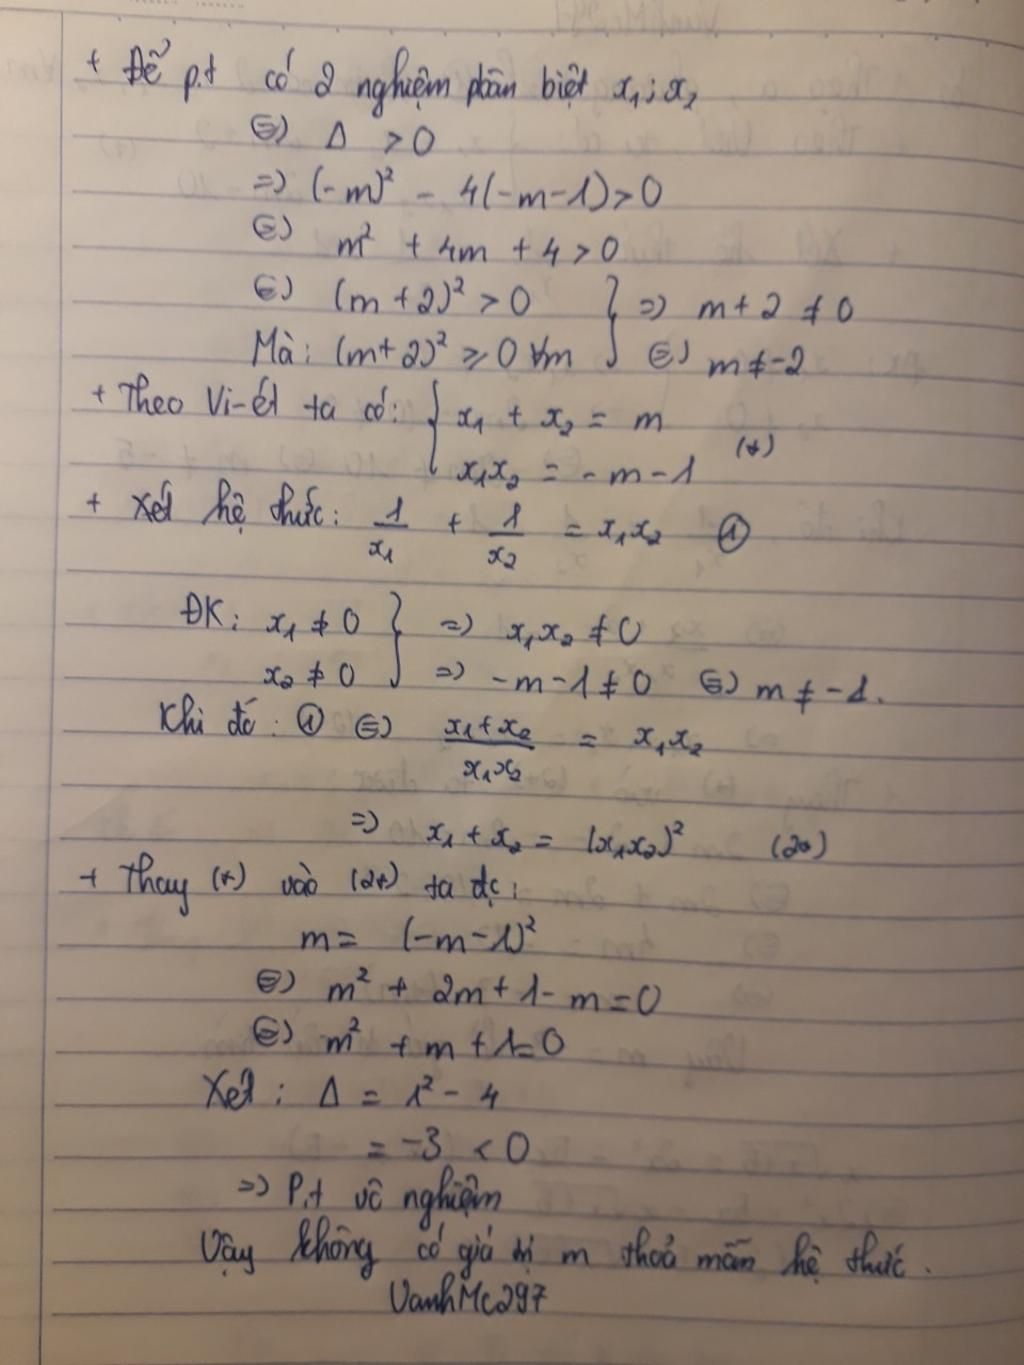 + Để p.t có 2 nghiệm phân biệt x₁; x₂
⇔) Δ > 0
=> (-m)² - 4(-m-1) > 0
⇔) m² + 4m + 4 > 0
⇔) (m+2)² > 0 } => m + 2 ≠ 0
Mà: (m+2)² ≥ 0 ∀m } ⇔) m ≠ -2
+ Theo Vi-ét ta có: { x₁ + x₂ = m
x₁x₂ = - m - 1 (*)
+ Xét hệ thức: 1/x₁ + 1/x₂ = x₁x₂ ①
ĐK: x₁ ≠ 0 } => x₁x₂ ≠ 0
x₂ ≠ 0 } => -m-1 ≠ 0 ⇔) m ≠ -1.
Khi đó: ① ⇔) (x₁+x₂)/(x₁x₂) = x₁x₂
=> x₁ + x₂ = (x₁x₂)² (2*)
+ Thay (*) vào (2*) ta đc:
m = (-m-1)²
⇔) m² + 2m + 1 - m = 0
⇔) m² + m + 1 = 0
Xét: Δ = 1² - 4
= -3 < 0
=> P.t vô nghiệm
Vậy không có giá trị m thoả mãn hệ thức.
VanhMc297